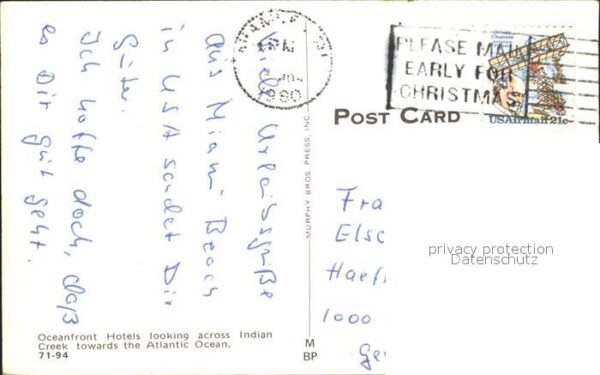 Viele Urlaubsgrüße
aus Miami Beach
in USA sendet Dir
Günter.
Ich hoffe doch, daß
es Dir gut geht.
Oceanfront Hotels looking across Indian
Creek towards the Atlantic Ocean.
71-94
MURPHY BROS. PRESS, INC.
M
BP
MIAMI, FL
PM
1980
PLEASE MAIL
EARLY FOR
CHRISTMAS
Octave
Chanute
USAirmail 21c
POST CARD
Fra
Else
Haef
1000
Ge
privacy protection
Datenschutz